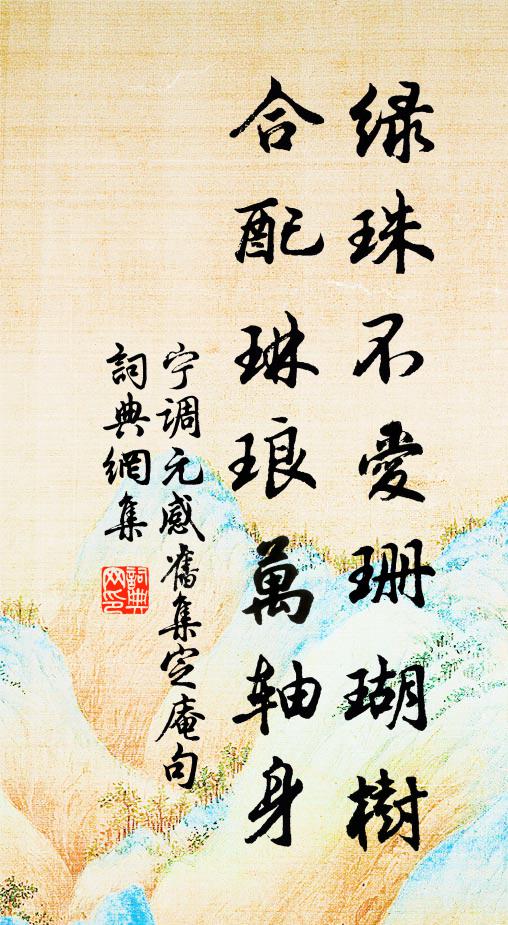 绿珠不愛珊瑚樹
合配琳琅萬轴身
宁调元感舊集定庵句
詞典網集
詞典
网印